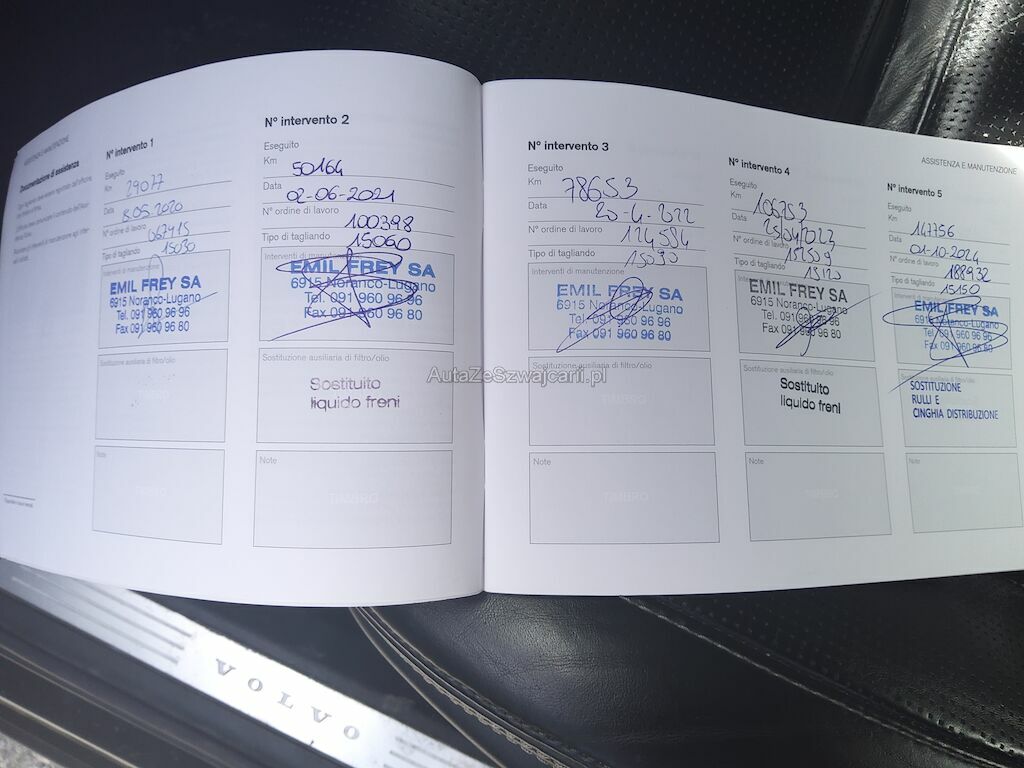 ASSISTENZA E MANUTENZIONE
Documentazione di assistenza
Nº intervento 1
Eseguito
Km 29077
Data 8.05.2020
Nº ordine di lavoro
Tipo di tagliando 15030
Interventi di manutenzione
EMIL FREY SA
6915 Noranco-Lugano
Tel. 091 960 96 96
Fax 091 960 96 80
Sostituzione ausiliaria di filtro/olio
TIMBRO
Note
Nº intervento 2
Eseguito
Km 50164
Data 02-06-2021
Nº ordine di lavoro 100398
Tipo di tagliando 15060
Interventi di manutenzione
EMIL FREY SA
6915 Noranco-Lugano
Tel. 091 960 96 96
Fax 091 960 96 80
Sostituzione ausiliaria di filtro/olio
Sostituito
liquido freni
Note
TIMBRO
Nº intervento 3
Eseguito
Km 78653
Data 20-4-2022
Nº ordine di lavoro 124534
Tipo di tagliando 15090
Interventi di manutenzione
EMIL FREY SA
6915 Noranco-Lugano
Tel. 091 960 96 96
Fax 091 960 96 80
Sostituzione ausiliaria di filtro/olio
TIMBRO
Note
TIMBRO
Nº intervento 4
Eseguito
Km 106253
Data
Nº ordine di lavoro
Tipo di tagliando 15120
EMIL FREY SA
6915 Noranco-Lugano
Tel. 091 960 96 96
Fax 091 960 96 80
Sostituzione ausiliaria di filtro/olio
Sostituito
liquido freni
Note
TIMBRO
ASSISTENZA E MANUTENZIONE
Nº intervento 5
Eseguito
Km 147756
Data 01-10-2024
Nº ordine di lavoro 188932
Tipo di tagliando 15150
EMIL FREY SA
6915 Noranco-Lugano
Tel. 091 960 96 96
Fax 091 960 96 80
SOSTITUZIONE
RULLI E
CINGHIA DISTRIBUZIONE
Note
TIMBRO
AutaZeSzwajcarii.pl
VOLVO